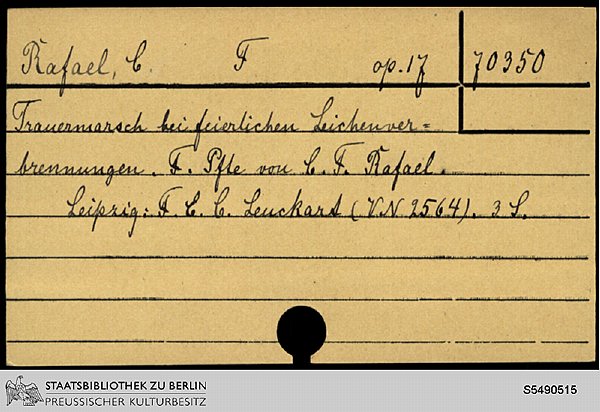 Rafael, C. F op. 17 70350
Trauermarsch bei feierlichen Leichenver=
brennungen. F. Pfte von C. F. Rafael.
Leipzig: F. E. C. Leuckart (VN 2564). 3 S.
STAATSBIBLIOTHEK ZU BERLIN
PREUSSISCHER KULTURBESITZ
S5490515